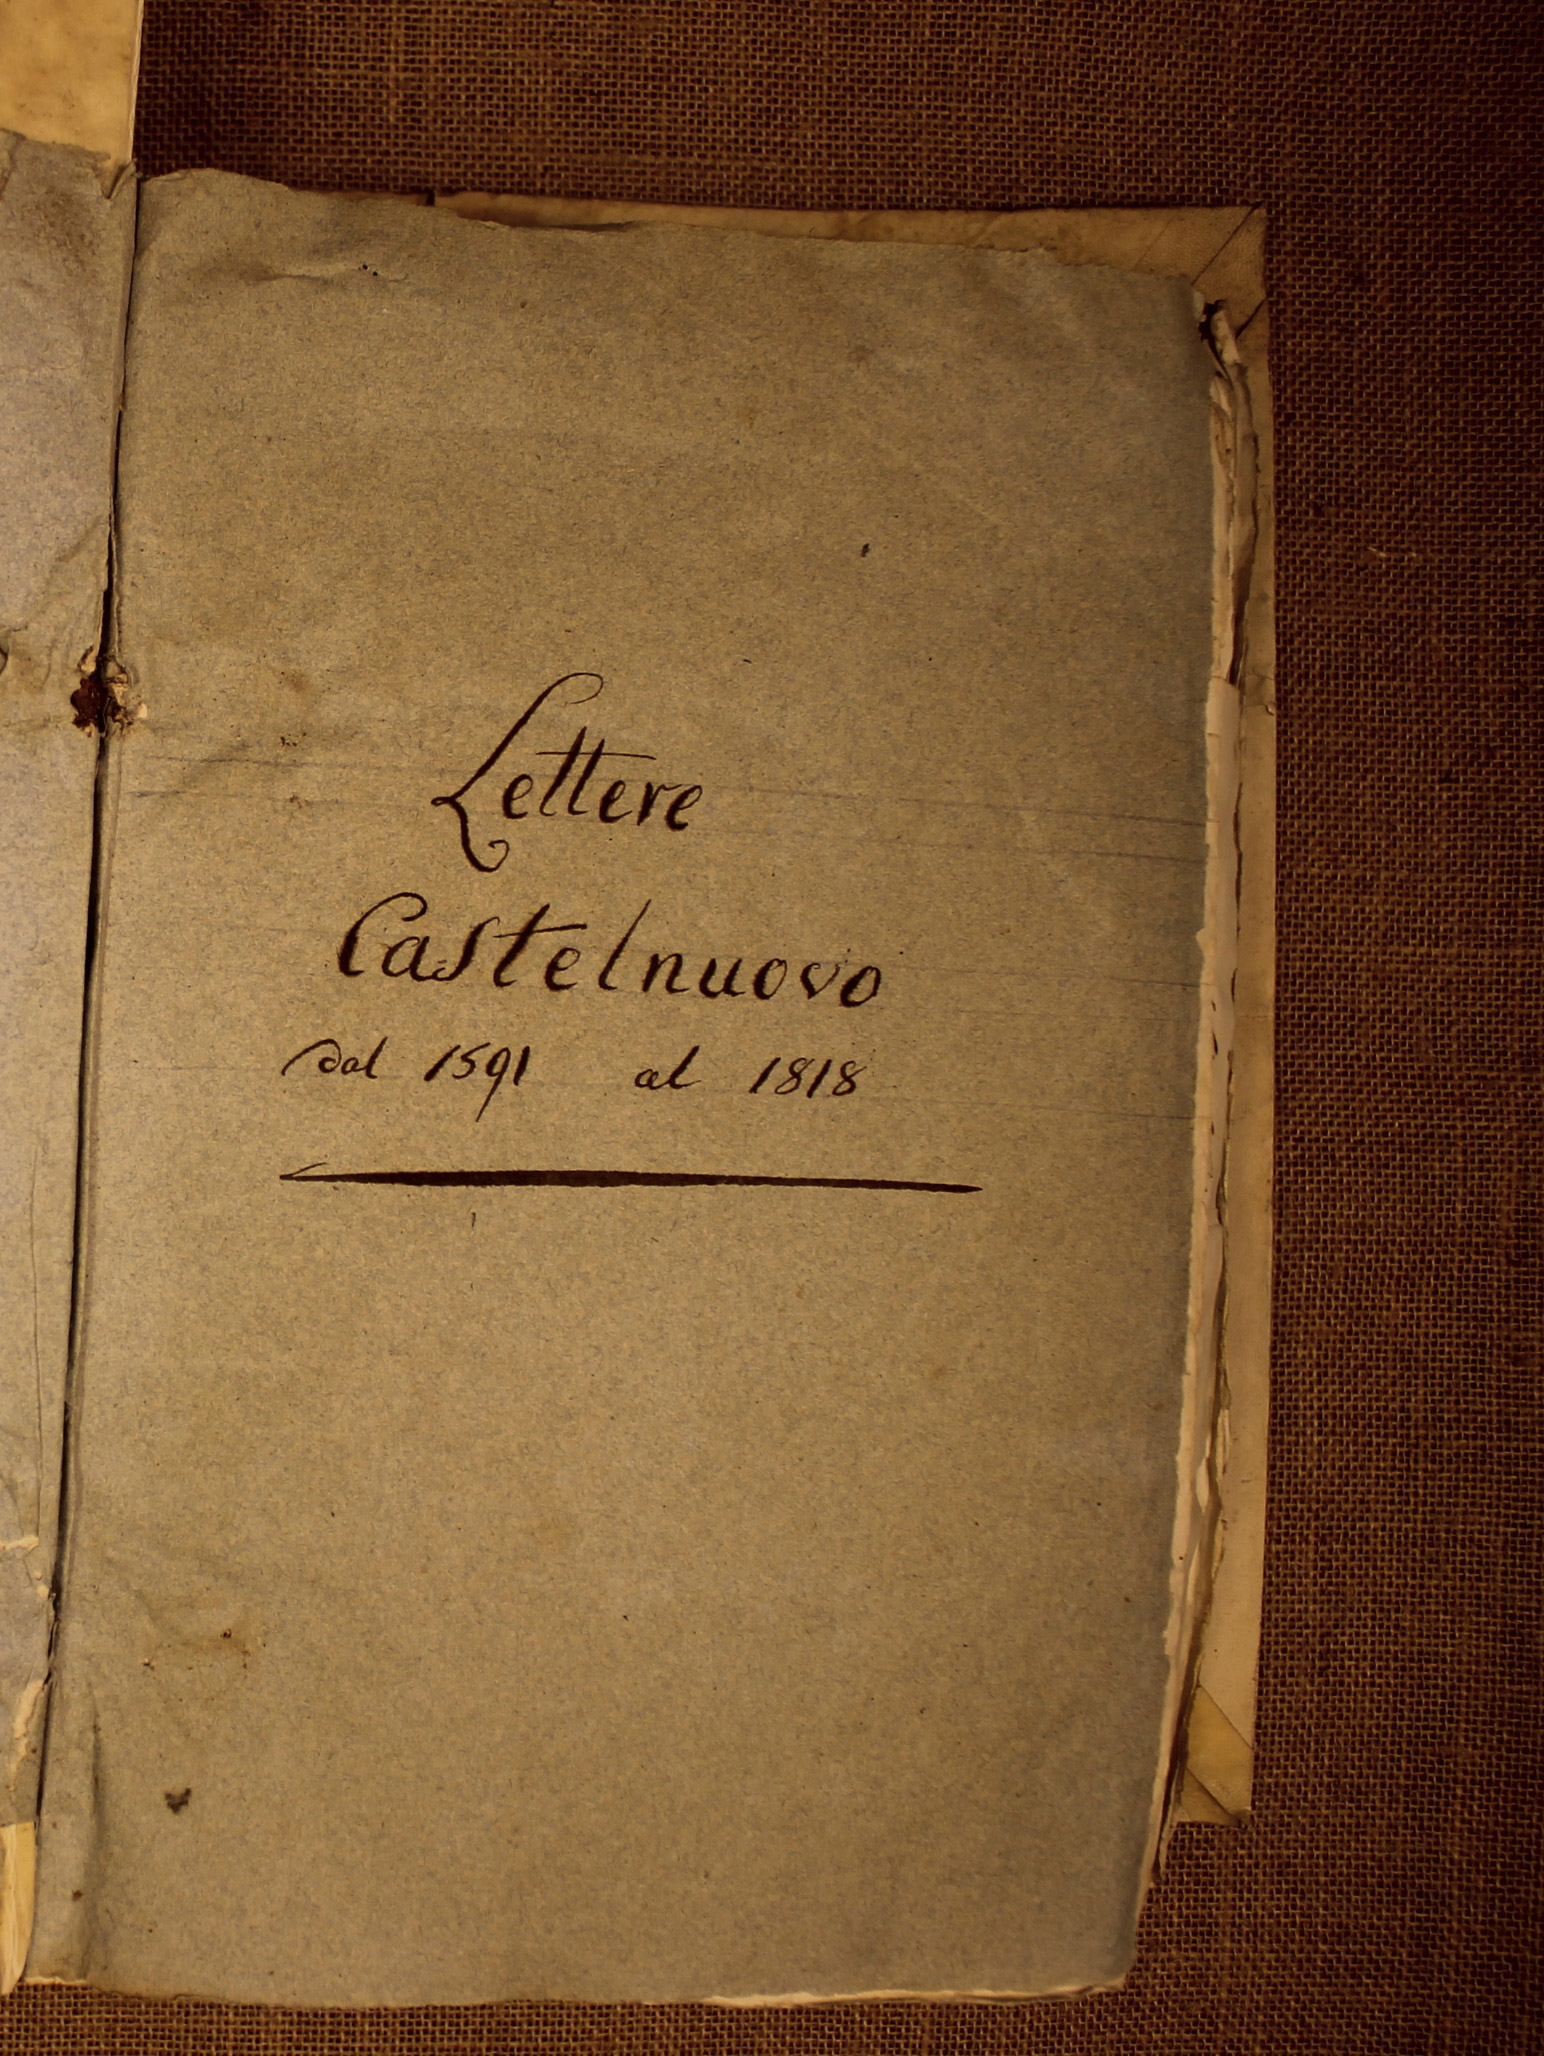 Lettere
Castelnuovo
dal 1591 al 1818